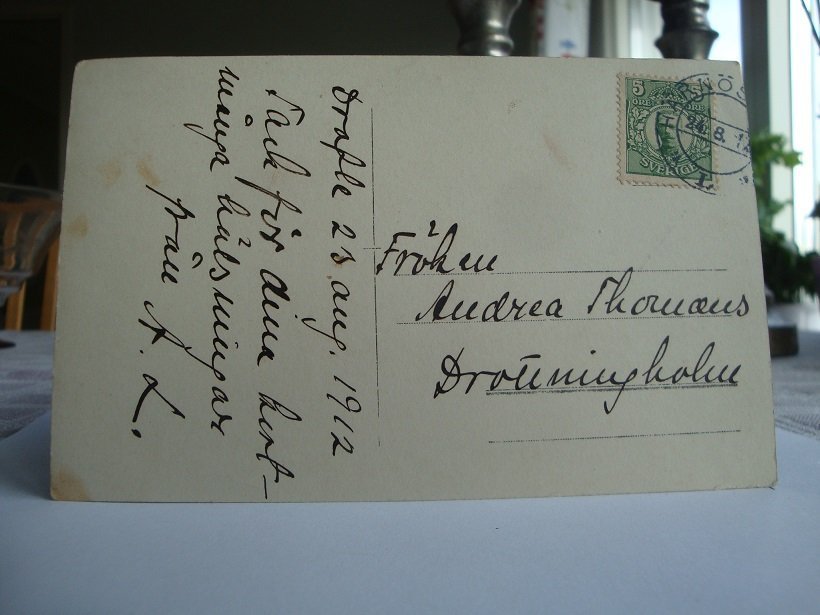 Drafle 23 aug. 1912
Tack för dina kort-
många hälsningar
från A. L.
5 5
ÖRE ÖRE
SVERIGE
24.8.12
Fröken
Andrea Thomæus
Drottningholm